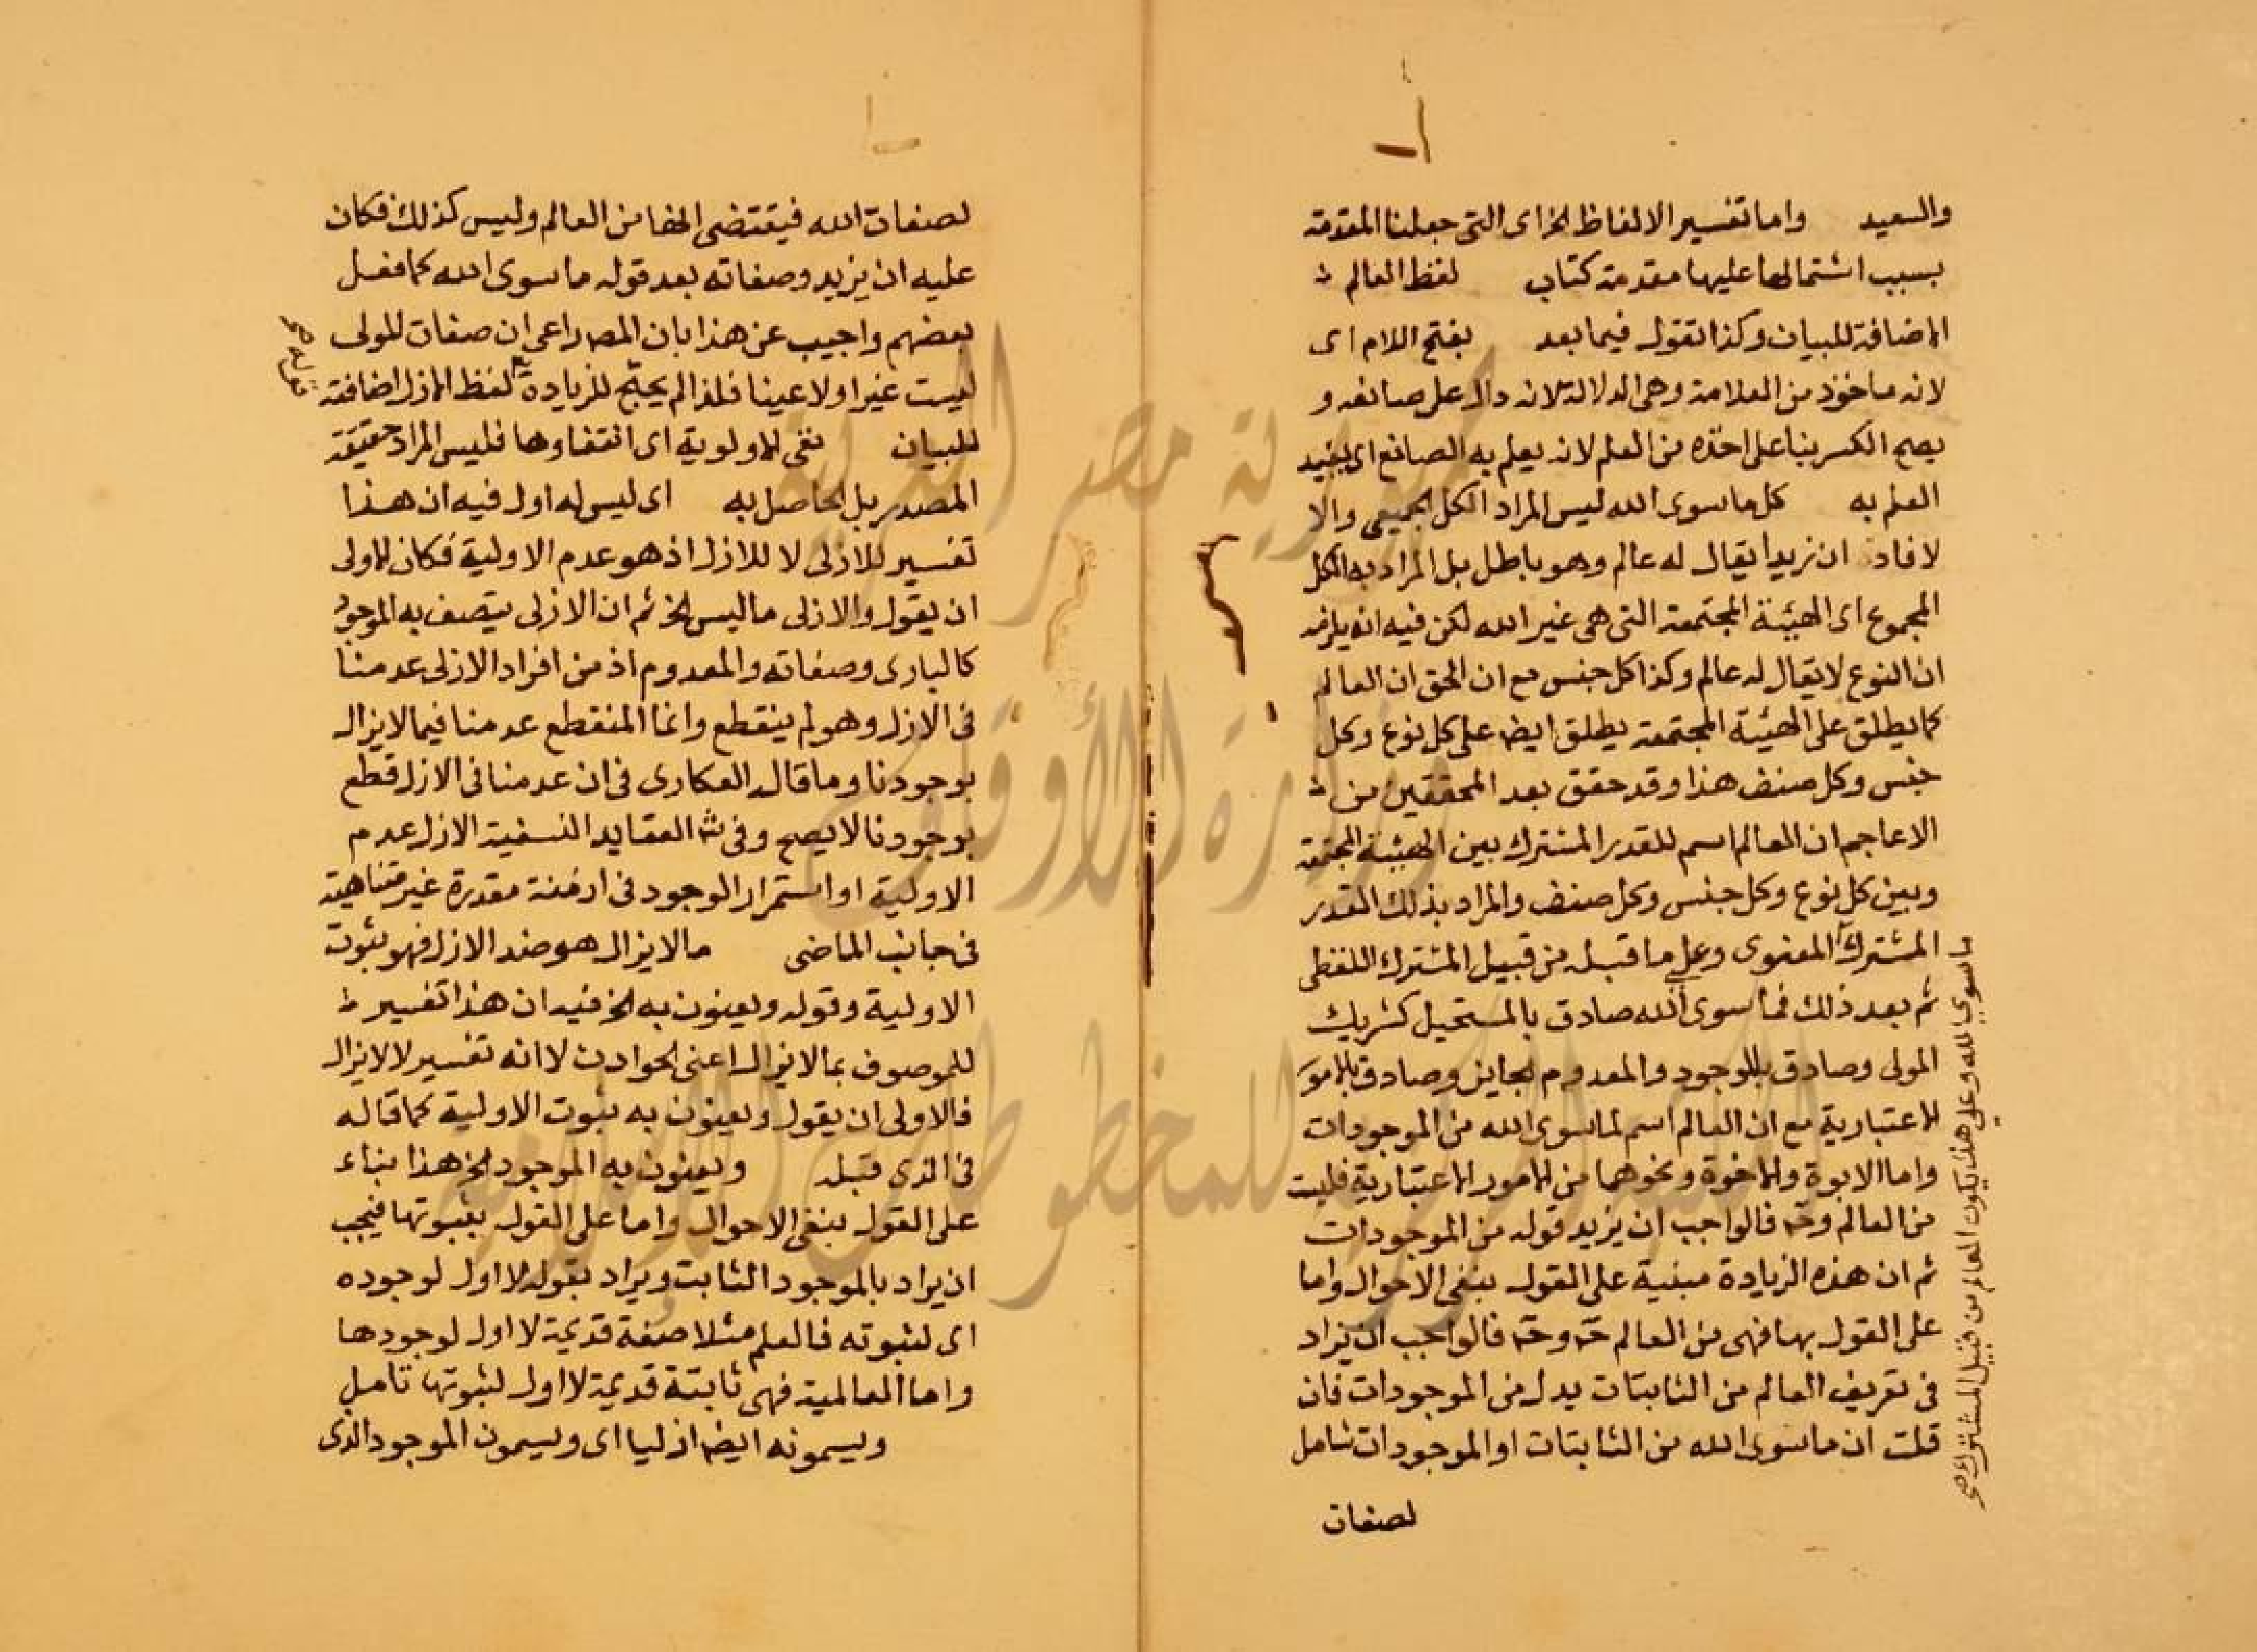 والسعيد واما تفسير الالفاظ الخ اى التى جعلنا المقدمة
بسبب اشتمالها عليها مقدمة كتاب لفظ العالم
الاضافة للبيان وكذا تقول فيما بعد بفتح اللام اى
لانه ماخوذ من العلامة وهى الدلالة لانه دال على صانعه و
يصح الكسر بنا على اخذه من العلم لانه يعلم به الصانع اى يفيد
العلم به كل ما سوى الله ليس المراد الكل الجميعى والا
لافاد ان زيدا يقال له عالم وهو باطل بل المراد به الكل
المجموع اى الهيئة المجتمعة التى هى غير الله لكن فيه انه يلزم
ان النوع لا يقال له عالم وكذا كل جنس مع ان الحق ان العالم
كما يطلق على الهيئة المجتمعة يطلق ايض على كل نوع وكل
جنس وكل صنف هذا وقد حقق بعد المحققين من
الاعاجم ان العالم اسم للقدر المشترك بين الهيئة المجتمعة
وبين كل نوع وكل جنس وكل صنف والمراد بذلك القدر
المشترك المعنوى وعلى ما قبله من قبيل المشترك اللفظى
ثم بعد ذلك فما سوى الله صادق بالمستحيل كشريك
المولى وصادق بالموجود والمعدوم الجايز وصادق بالامور
الاعتبارية مع ان العالم اسم لما سوى الله من الموجودات
واما الابوة والاخوة ونحوهما من الامور الاعتبارية فليست
من العالم وح فالواجب ان يزيد قوله من الموجودات
ثم ان هذه الزيادة مبنية على القول بنفى الاحوال واما
على القول بها فهى من العالم ح وح فالواجب ان يزاد
فى تعريف العالم من الثابتات بدل من الموجودات فان
قلت ان ما سوى الله من الثابتات او الموجودات شامل
لصفات
ما سوى الله وعلى هذا يكون العالم من قبيل المشترك صح
لصفات الله فيقتضى انها من العالم وليس كذلك فكان
عليه ان يزيد وصفاته بعد قوله ما سوى الله كما فعل
بعضهم واجيب عن هذا بان المص راعى ان صفات المولى
ليست غيرا ولا عينا فلذا لم يحتج للزيادة لفظ الازل اضافته
للبيان نفى الاولوية اى انتفاوها فليس المراد حقيقة
المصدر بل الحاصل به اى ليس له اول فيه ان هذا
تفسير للازلى لا للازل اذ هو عدم الاولية فكان الاولى
ان يقول والازلى ما ليس الخ ثم ان الازلى يتصف به الموجود
كالبارى وصفاته والمعدوم اذ من افراد الازلى عدمنا
فى الازل وهو لم ينقطع وانما المنقطع عدمنا فيما لا يزال
بوجودنا وما قاله العكارى فى ان عدمنا فى الازل قطع
بوجودنا لا يصح وفى ش العقايد النسفية الازل عدم
الاولية او استمرار الوجود فى ازمنة مقدرة غير متناهية
فى جانب الماضى ما لا يزال هو ضد الازل فهو ثبوت
الاولية وقوله ويعنون به الخ فيه ان هذا تفسير
للموصوف بما لا يزال اعنى الحوادث لا انه تفسير لا لا يزال
فالاولى ان يقول ويعنون به ثبوت الاولية كما قاله
فى الذى قبله ويعنون به الموجود الخ هذا بناء
على القول بنفى الاحوال واما على القول بثبوتها فيجب
ان يراد بالموجود الثابت ويراد بقوله لا اول لوجوده
اى لثبوته فالعلم مثلا صفة قديمة لا اول لوجودها
واما العالمية فهى ثابتة قديمة لا اول لثبوتها تامل
ويسمونه ايض ازليا اى ويسمون الموجود الذى